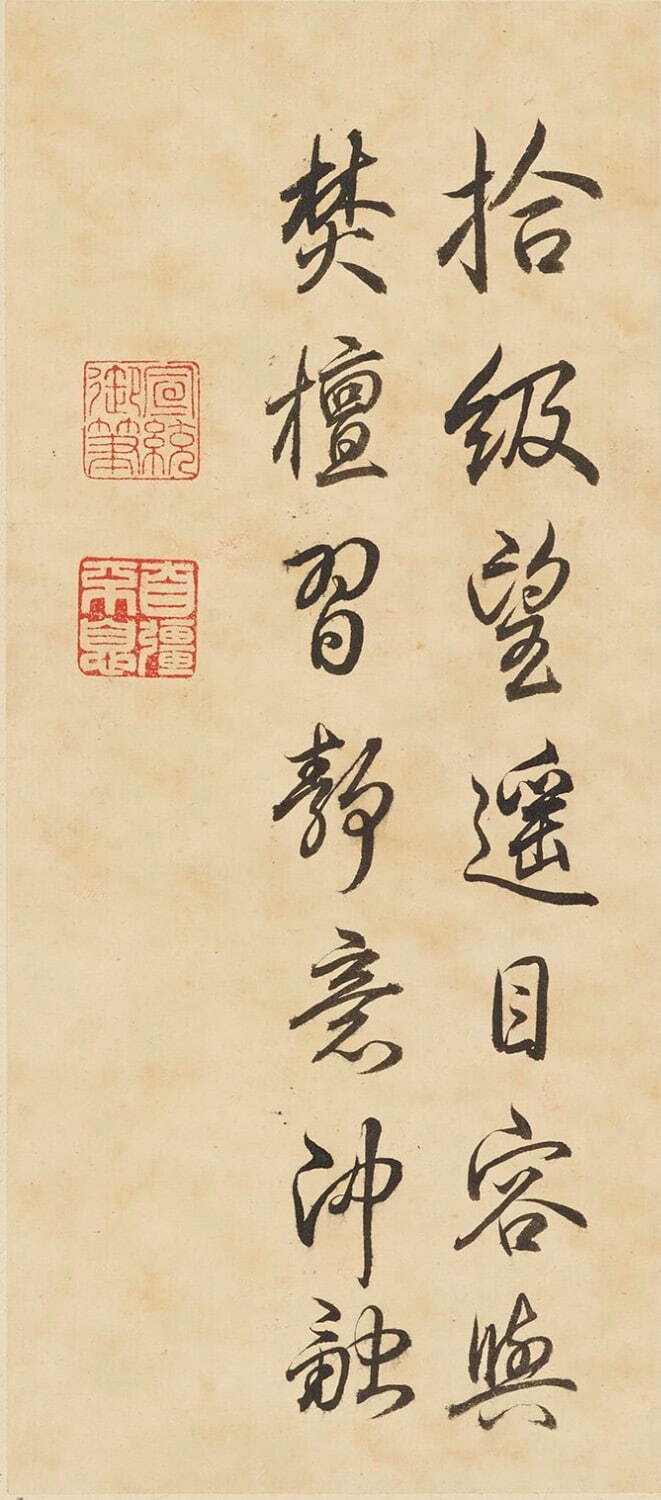 拾级望遥目容與
焚檀習靜意沖融
宣統御筆
自彊不息